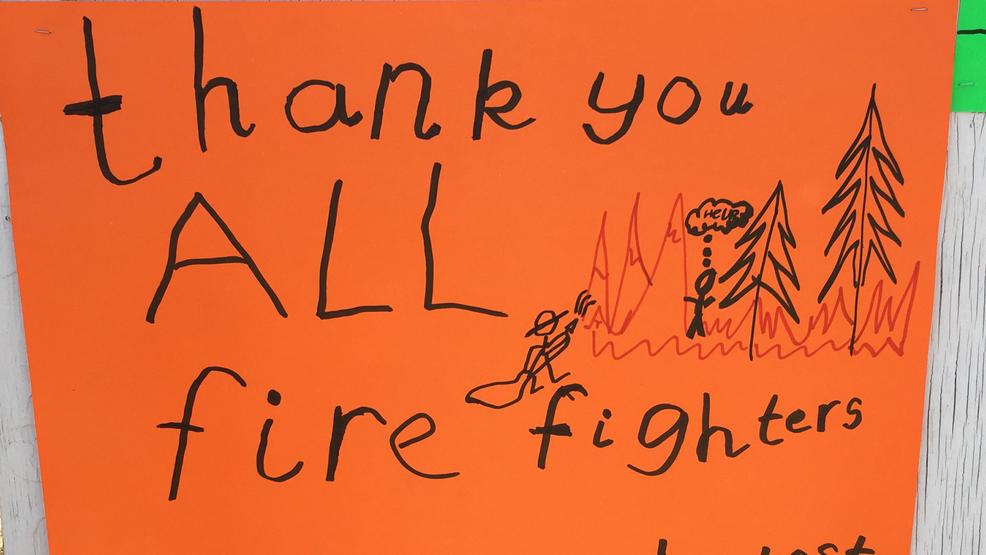 thank you
HELP
ALL
fire fighters